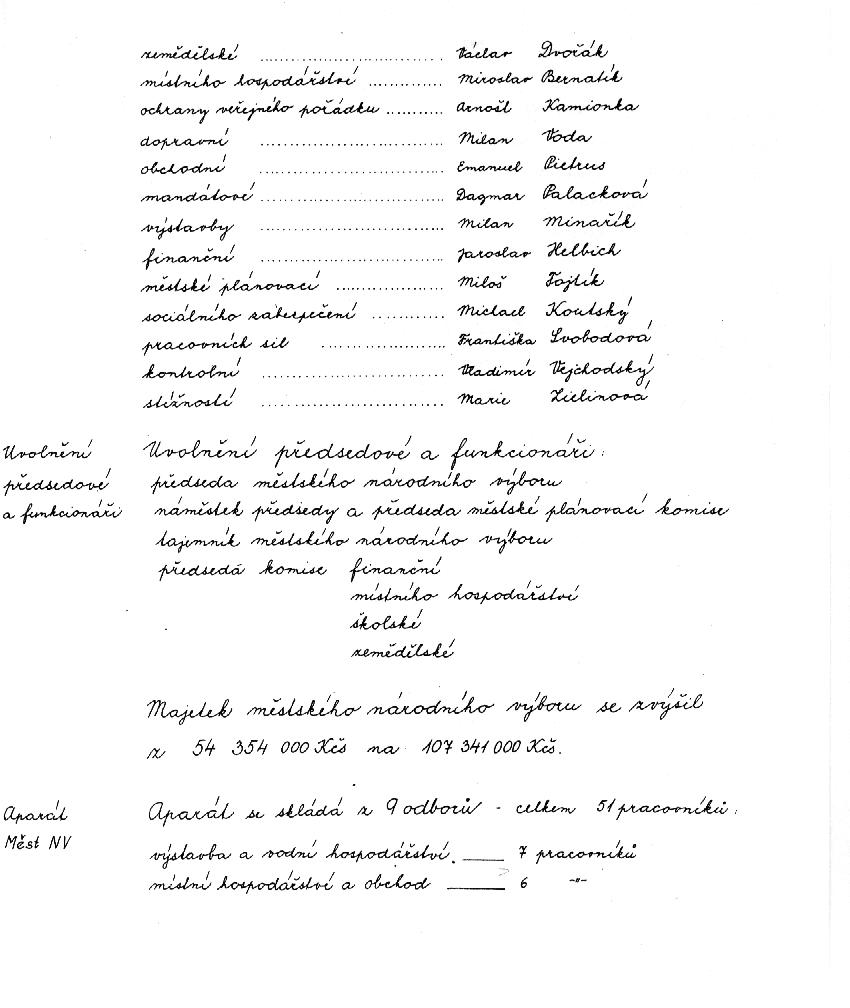 zemědělské ................................ Václav Dvořák
místního hospodářství ............. Miroslav Bernatík
ochrany veřejného pořádku .......... Arnošt Kamionka
dopravní ................................ Milan Voda
obchodní ................................ Emanuel Pietrus
mandátové ................................ Dagmar Palacková
výstavby ................................ Milan Minařík
finanční ................................ Jaroslav Helbich
městské plánovací ................... Miloš Fojtík
sociálního zabezpečení ............ Michael Koutský
pracovních sil ..................... Františka Svobodová
kontrolní ................................ Vladimír Vejchodský
stížností ................................ Marie Zielinová
Uvolnění
předsedové
a funkcionáři
Uvolnění předsedové a funkcionáři:
předseda městského národního výboru
náměstek předsedy a předseda městské plánovací komise
tajemník městského národního výboru
předsedá komise finanční
místního hospodářství
školské
zemědělské
Majetek městského národního výboru se zvýšil
z 54 354 000 Kčs na 107 341 000 Kčs.
Aparát
Měst NV
Aparát se skládá z 9 odborů - celkem 51 pracovníků:
výstavba a vodní hospodářství. ____ 7 pracovníků
místní hospodářství a obchod ______ 6 -"-